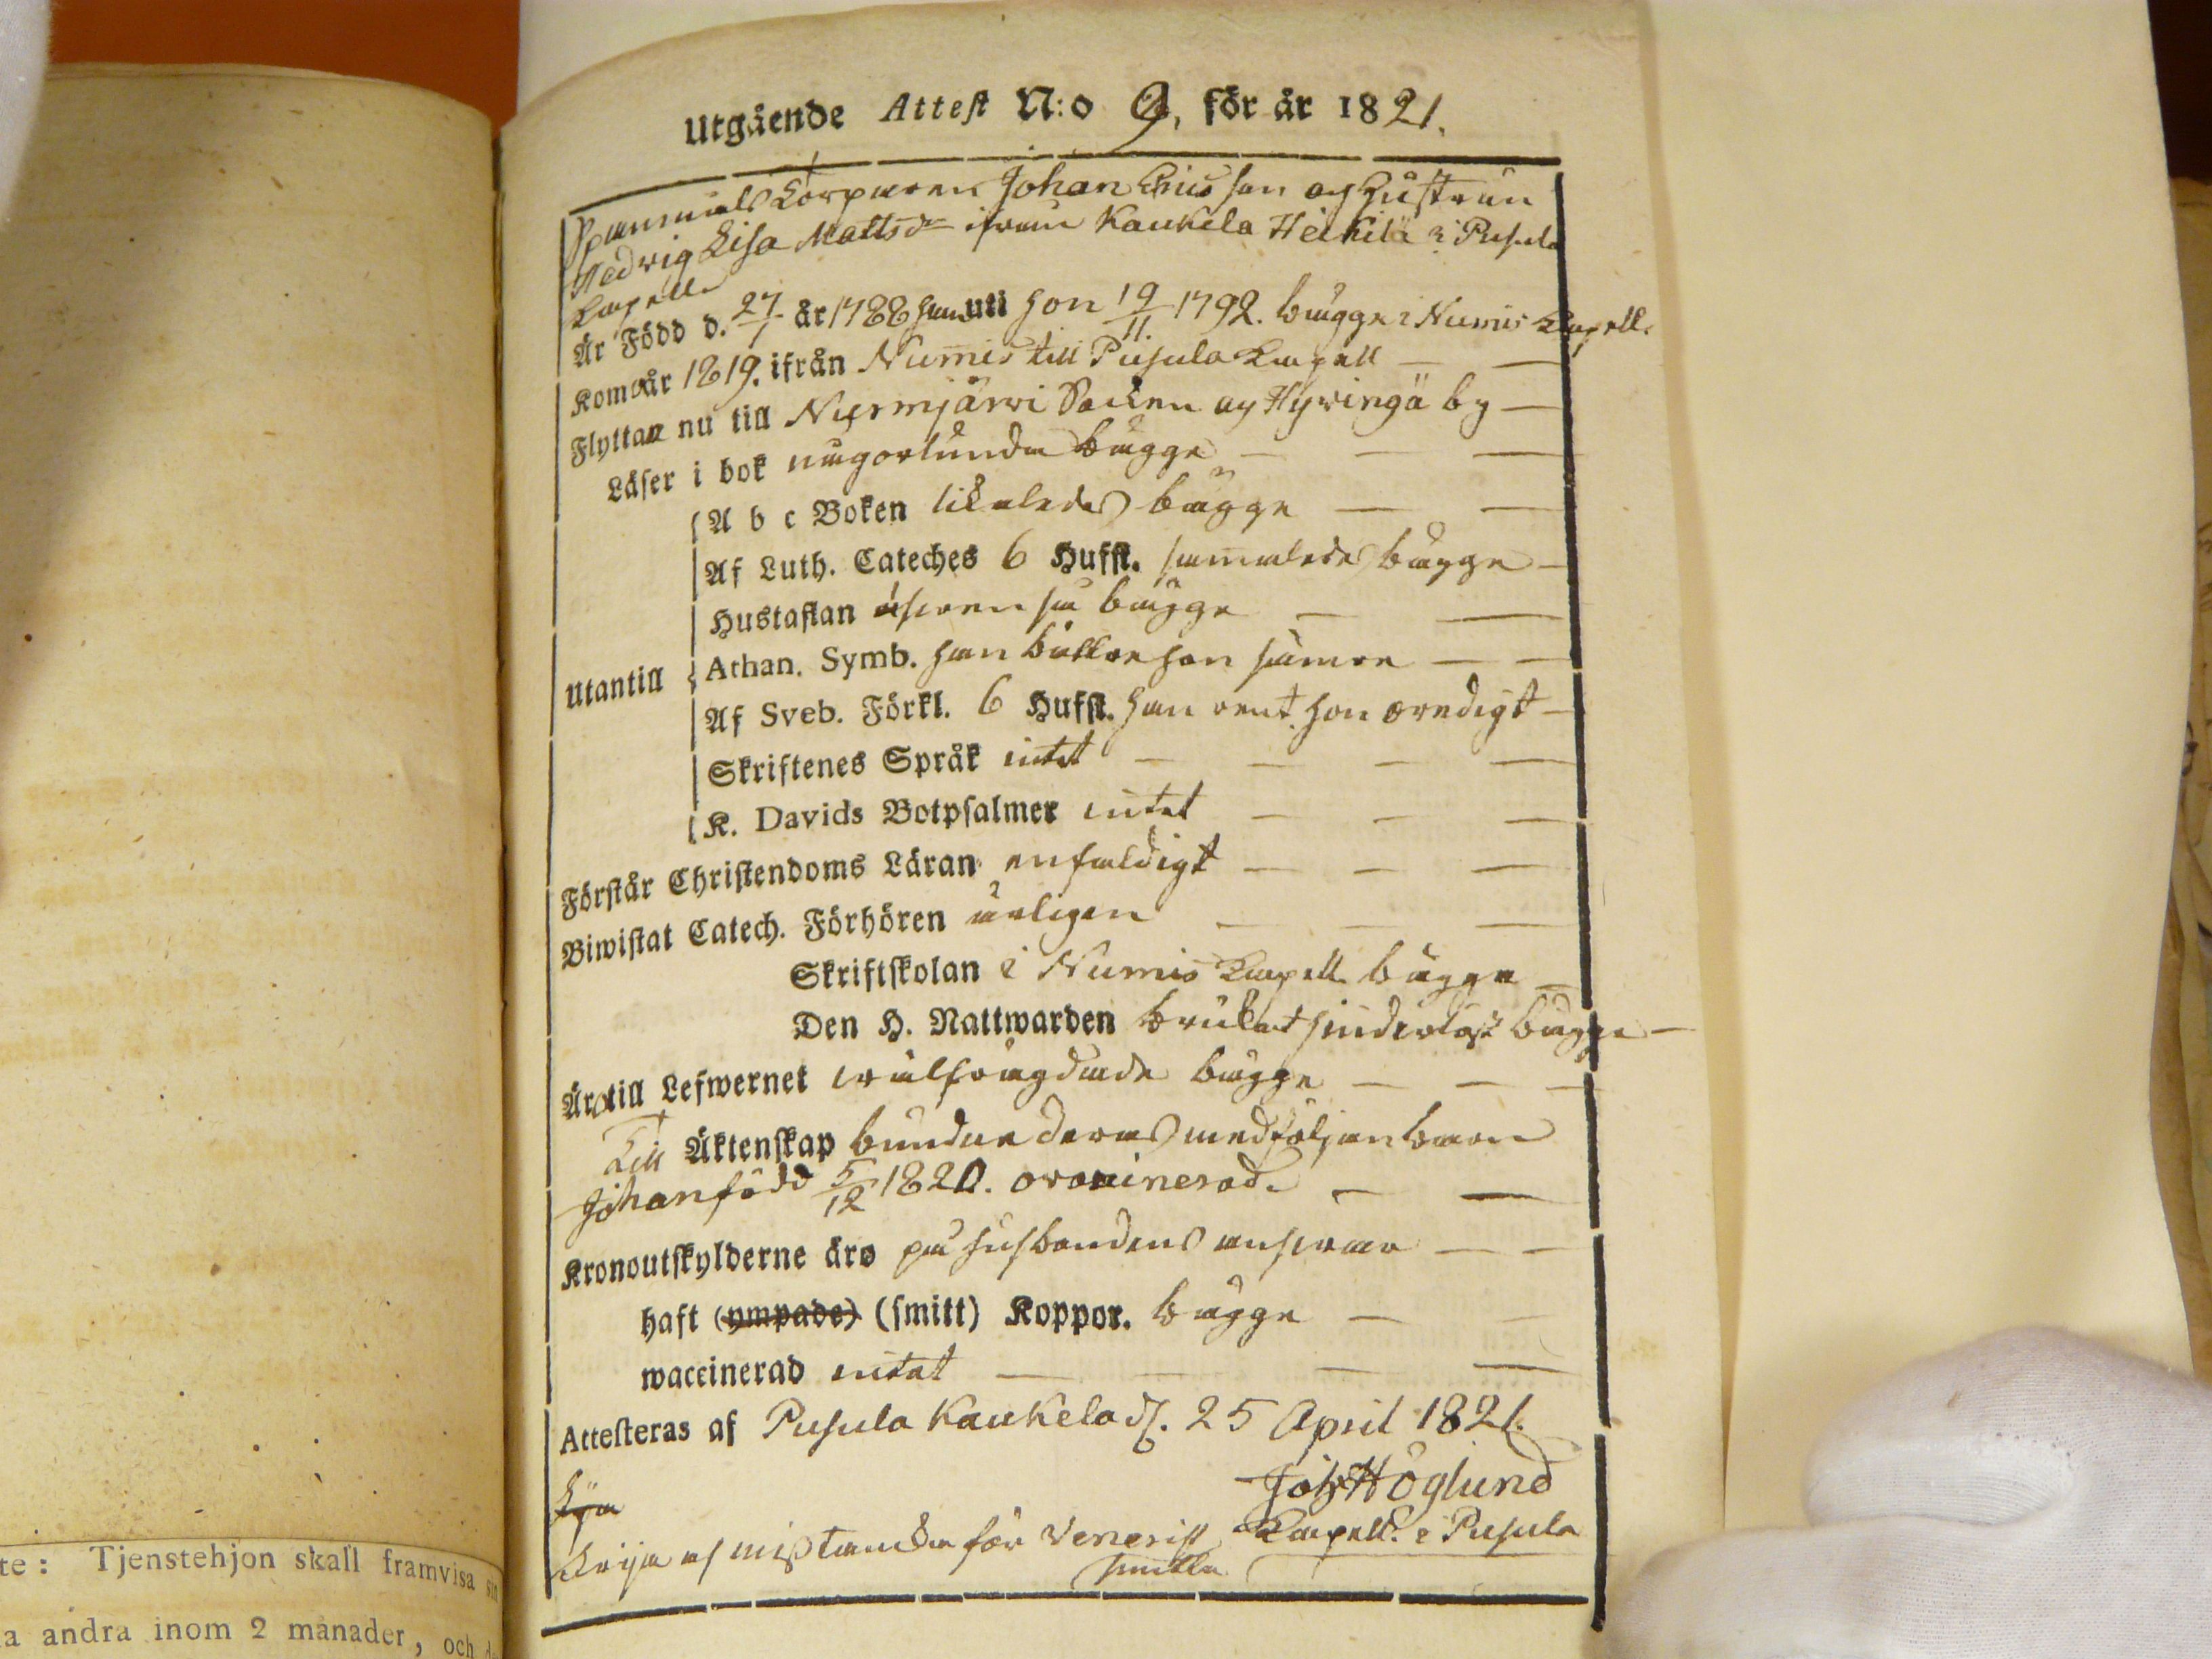 Utgående Attest N:o 9, för år 1821.
Spanmåls Torparen Johan Ericsson och Hustrun
Hedvig Lisa Mattsdr ifrån Kaukela Heikilä i Pusula
Capell
Är Född d. 27/1 år 1788 han uti hon 19/11. 1792. bägge i Numis Capell.
Kom år 1819. ifrån Numis till Pusula Capell — —
Flyttar nu till Nurmjärvi Socken och Hyvingä by —
Läser i bok någorlunda bägge — — —
A b c Boken likaledes bägge — —
Af Luth. Cateches 6 Hufst. sammaledes bägge —
Hustaflan äfven så bägge — —
Utantill
Athan. Symb. han bättre hon sämre — —
Af Sveb. Förkl. 6 Hufst. han rent hon oredigt —
Skriftenes Språk intet — — — —
K. Davids Botpsalmer intet — — —
Förstår Christendoms Läran enfaldigt — — —
Biwistat Catech. Förhören årligen — — —
Skriftskolan i Numis Capell bägge —
Den H. Nattwarden brukat hinderlöst bägge —
Äro till Lefwernet wälfrägdade bägge — — —
Till Äktenskap bundne deras medföljan barn
Johan född 5/12 1820. ovaccinerad. — —
Kronoutskylderne äro på husbondens answar — —
haft (ympade) (smitt) Koppor. bägge — —
waccinerad intet — — — —
Attesteras af Pusula Kaukela d. 25 April 1821.
Joh Höglund
Frija
Frija af misstancka för Venerisk Capell. i Pusula
smitta
te: Tjenstehjon skall framvisa sin
a andra inom 2 månader, och de